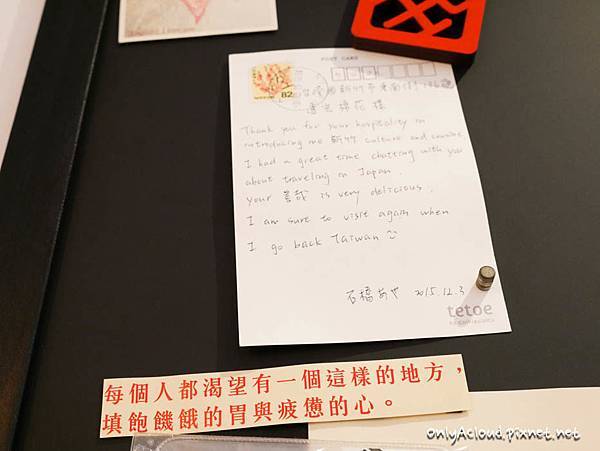 POST CARD
82
台灣國新竹市東南街
透色棉花樣
Thank you for your hospitality in
introducing me 新竹 culture and cuisine.
I had a great time chatting with you
about traveling in Japan.
Your 善哉 is very delicious.
I am sure to visit again when
I go back Taiwan
石橋あや 2015.12.3
tetoe
每個人都渴望有一個這樣的地方，
填飽饑餓的胃與疲憊的心。
OnlyAcloud.pixnet.net